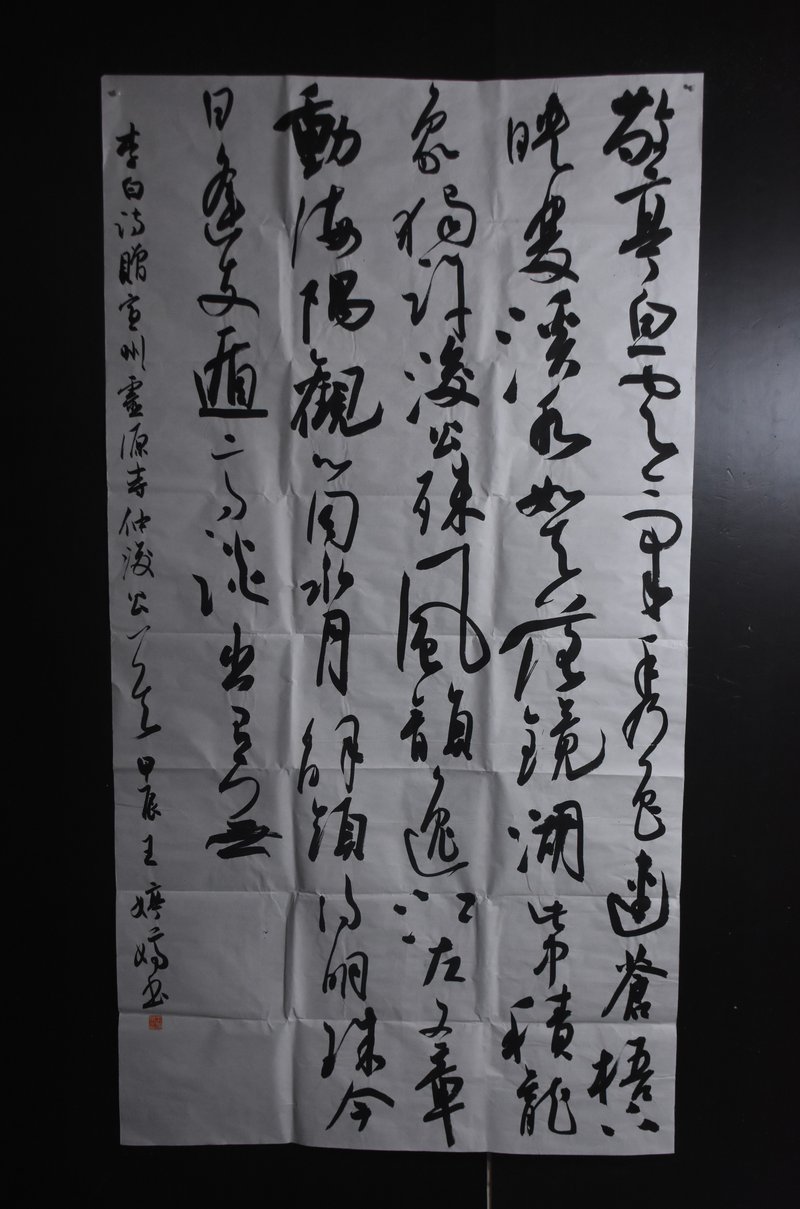 敬亭白雲氣秀色連蒼梧下
映雙溪水如天落鏡湖此中積龍
象獨許浚公殊風韻逸江左文章
動海隅觀心同水月解領得明珠今
日逢支遁高談出有無
李白詩贈宣州靈源寺仲浚公 甲辰王婷书